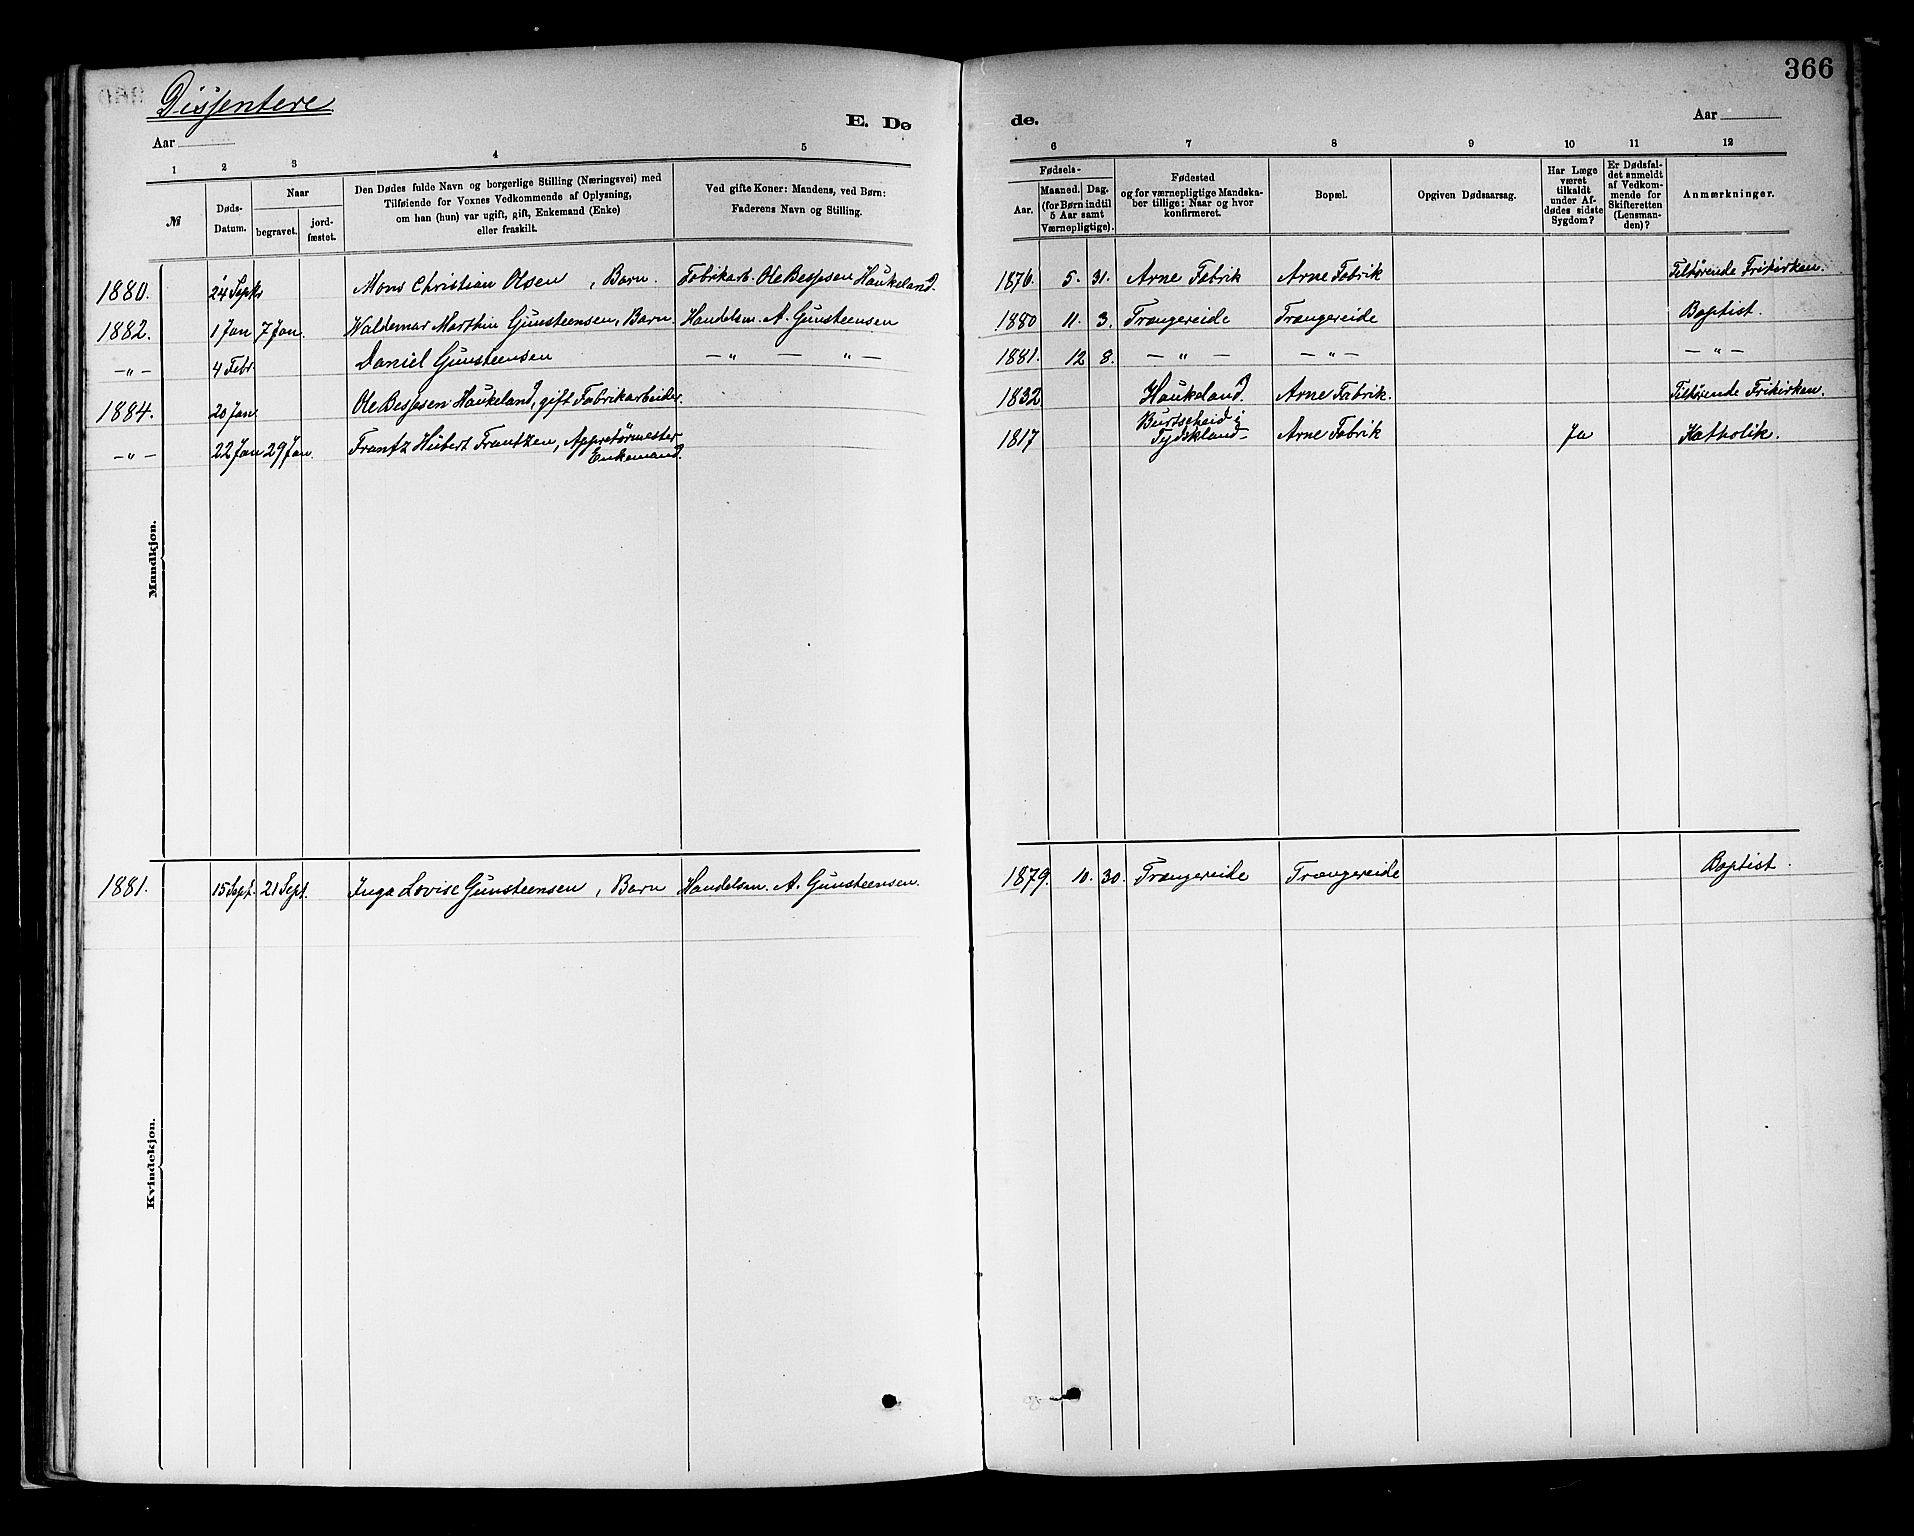 366
Dissentere
E. Dø
de.
Aar
Aar
1 2 3 4 5
6 7 8 9 10 11 12
№
Døds-
Datum.
Naar
begravet.
jord-
fæstet.
Den Dødes fulde Navn og borgerlige Stilling (Næringsvei) med
Tilføiende for Voxnes Vedkommende af Oplysning,
om han (hun) var ugift, gift, Enkemand (Enke)
eller fraskilt.
Ved gifte Koner: Mandens, ved Børn:
Faderens Navn og Stilling.
Fødsels-
Aar.
Maaned. Dag.
(for Børn indtil
5 Aar samt
Værnepligtige).
Fødested
og for værnepligtige Mandska-
ber tillige: Naar og hvor
konfirmeret.
Bopæl.
Opgiven Dødsaarsag.
Har Læge
været
tilkaldt
under Af-
dødes sidste
Sygdom?
Er Dødsfal-
det anmeldt
af Vedkom-
mende for
Skifteretten
(Lensman-
den)?
Anmærkninger.
Mandkjøn.
1880. 24 Septr Mons Christian Olsen, Barn. Fabrikarb. Ole Bessesen Haukeland. 1876. 5. 31. Arne Fabrik Arne Fabrik Tilhørende Frikirken.
1882. 1 Jan 7 Jan. Waldemar Marthin Gunsteensen, Barn. Handelsm. A. Gunsteensen 1880 11. 3. Trængereide Trængereide Baptist.
— " — 4 Febr. Daniel Gunsteensen — " — " — 1881. 12 8. — " — — " — — " —
1884. 20 Jan. Ole Bessesen Haukeland, gift Fabrikarbeider. 1832 Haukeland. Arne Fabrik. Tilhørende Frikirken.
— " — 22 Jan 29 Jan. Frantz Hubert Frantzen, Appretørmester 1817 Burtscheid i
Enkemand. Tydskland Arne Fabrik Ja Katholik.
Kvindekjøn.
1881. 15 Sept. 21 Sept. Inga Lovise Gunsteensen, Barn Handelsm. A. Gunsteensen. 1879. 10. 30. Trængereide Trængereide Baptist.